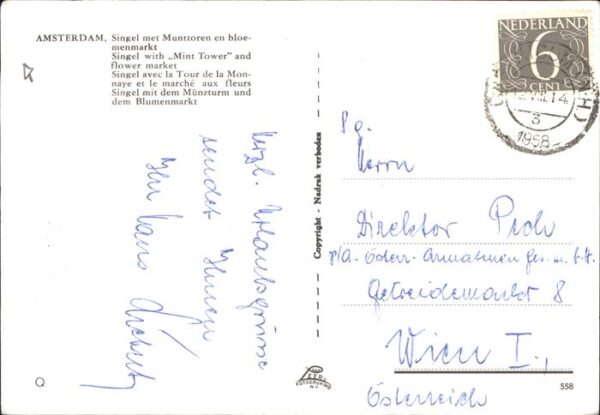 AMSTERDAM, Singel met Munttoren en bloe-
menmarkt
Singel with „Mint Tower" and
flower market
Singel avec la Tour de la Mon-
naye et le marché aux fleurs
Singel mit dem Münzturm und
dem Blumenmarkt
Herzl. Urlaubsgrüsse
sendet Ihnen
Ihr Hans
Copyright - Nadruk verboden
NEDERLAND
6
CENT
3
1958
Herrn
Direktor
p/A. Österr. Armaturen Ges. m. b. H.
Getreidemarkt 8
Wien I.,
Österreich
FOTODRUK
Q
558